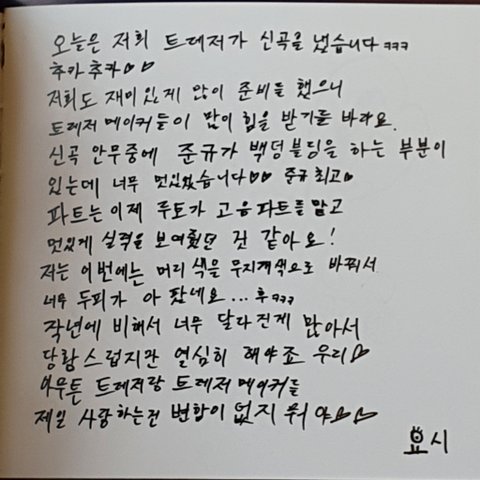 오늘은 저희 트레저가 신곡을 냈습니다ㅋㅋㅋ
추카추카♡♡
저희도 재미있게 많이 준비를 했으니
트레저 메이커들이 많이 힘을 받기를 바라요.
신곡 안무중에 준규가 백덩블딩을 하는 부분이
있는데 너무 멋있었습니다♡♡ 준규최고♡
파트는 이제 루토가 고음파트를 맡고
멋있게 실력을 보여줬던 것 같아요!
저는 이번에는 머리 색을 무지개색으로 바꿔서
너무 두피가 아팠네요...후ㅋㅋㅋ
작년에 비해서 너무 달라진게 많아서
당황스럽지만 열심히 해야죠 우리♡
아무튼 트레저랑 트레저 메이커들
제일 사랑하는건 변함이 없지 뭐야♡♡
요시